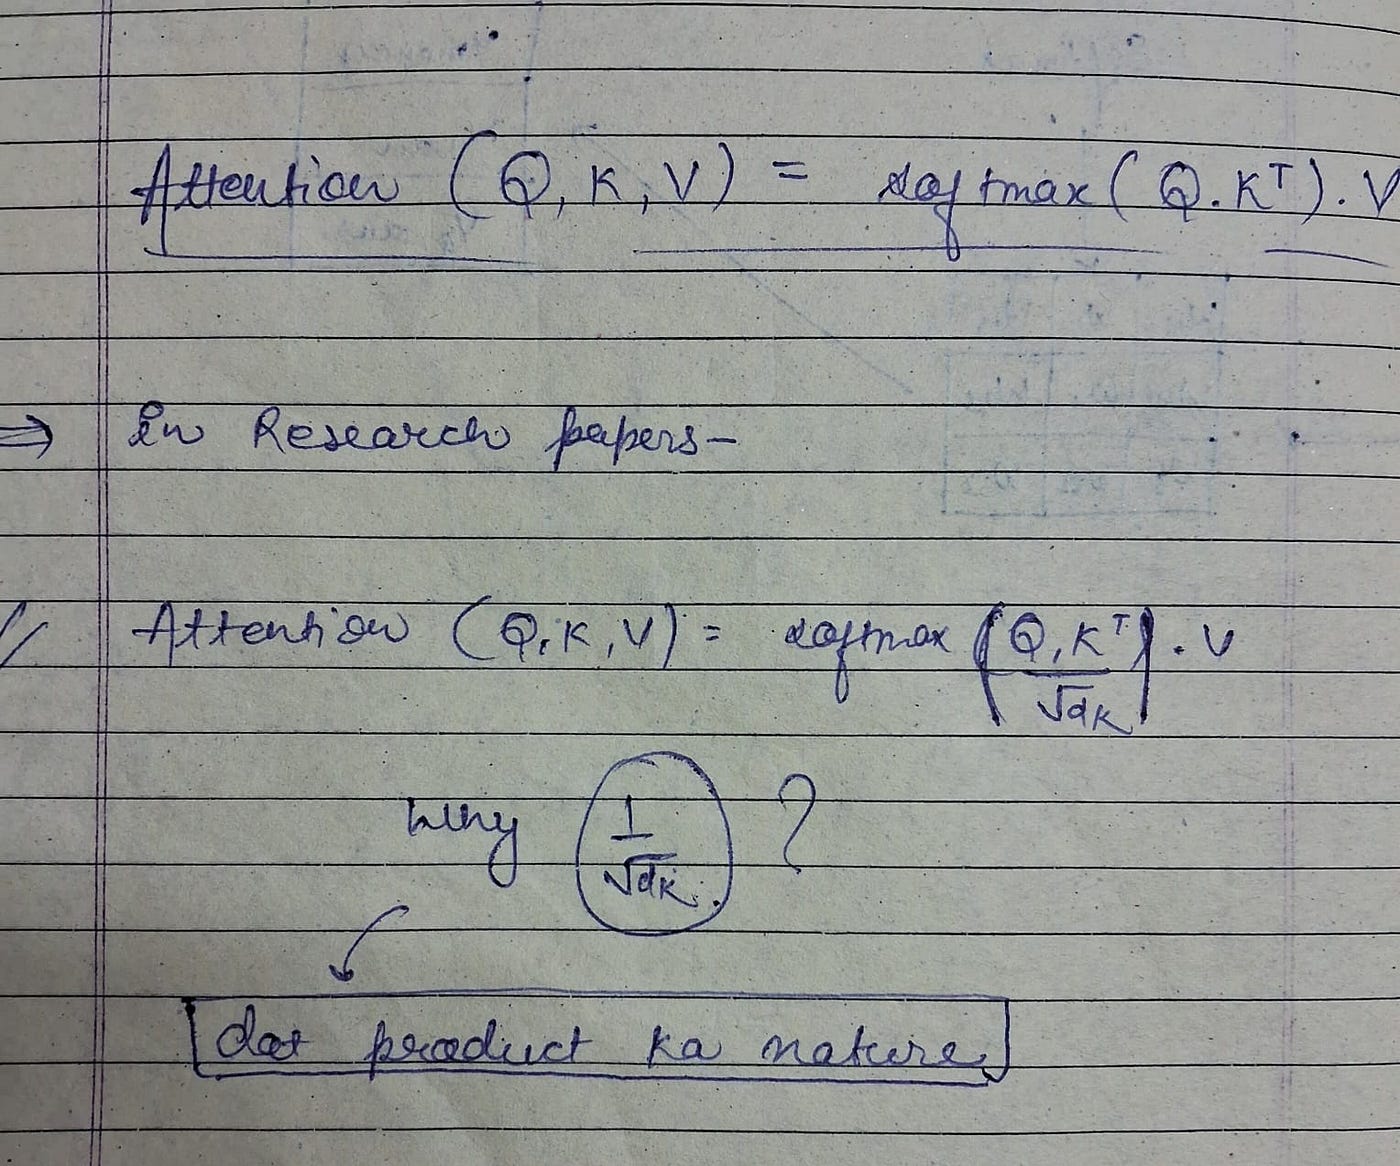 Attention (Q, K, V) = softmax(Q.Kᵀ).V
⇒ In Research papers-
Attention (Q,K,V) = softmax (Q.Kᵀ/√dk).V
Why 1/√dk ?
dot product ka nature